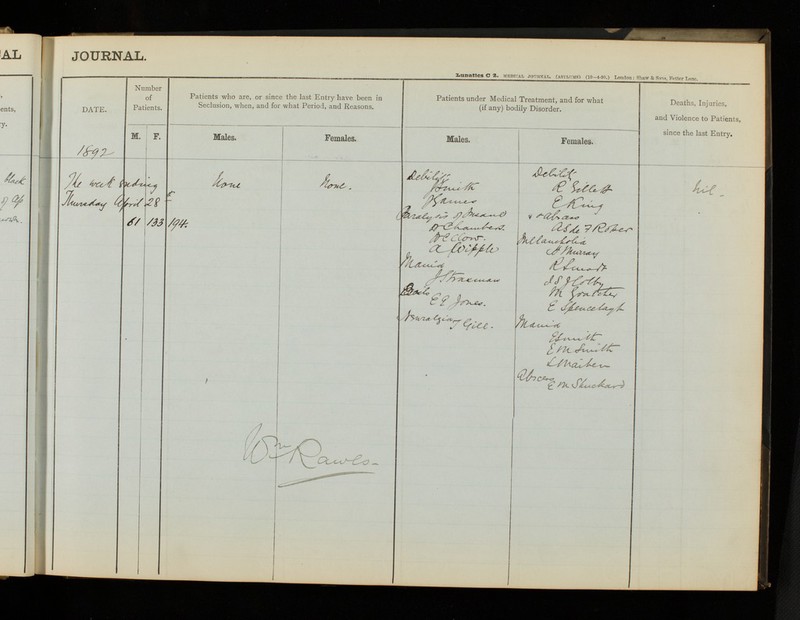 AL
JOURNAL.
Lunatics C 2. MEDICAL JOURNAL London: Shaw & Sons, Fetter Lane.
ents,
y.
DATE.
Number of Patients.
M. F.
Patients who are, or since the last Entry have been in Seclusion, when, and for what Period, and Reasons.
Males. Females.
Patients under Medical Treatment, and for what (if any) bodily Disorder.
Males. Females.
Deaths, Injuries, and Violence to Patients, since the last Entry.
1892
The week ending
Thursday April 28th
61 133 194.
None
None.
Debility
J Smith
J James
Paralysis of Insane
W Chambers.
A Wipple
Mania
J Straxman
Boils
E E Jones.
Neuralgia
Gill.
Debility
R Gellett
E King
A S de F Roper
Melancholia
Murray
R Smart
J S J Colby
M Goatcher
E Spencelagh
Mania
E Smith
E M Smith
L Maiben
Abscess
E M Stuckard
nil -
Wm Rawes -